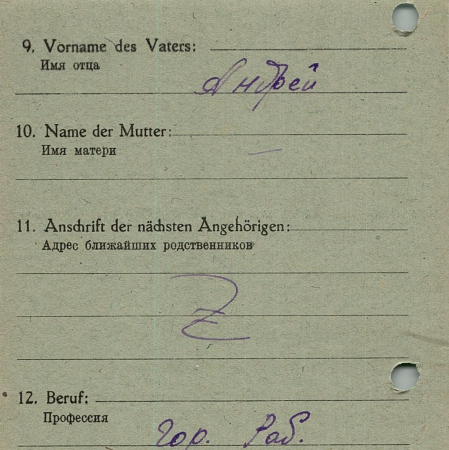 9. Vorname des Vaters:
Имя отца
Андрей
10. Name der Mutter:
Имя матери
—
11. Anschrift der nächsten Angehörigen:
Адрес ближайших родственников
Z
12. Beruf:
Профессия
гор. Раб.